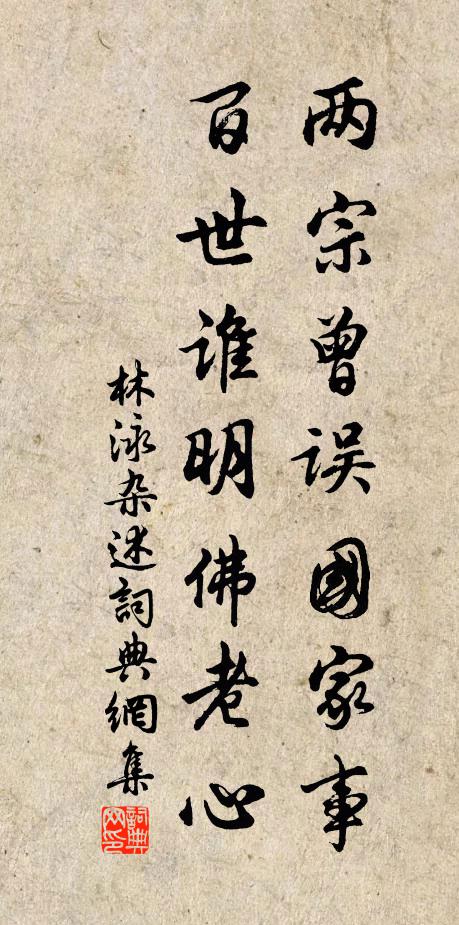 两宗曾误國家事
百世谁明佛老心
林泳杂述詞典網集
詞典网印